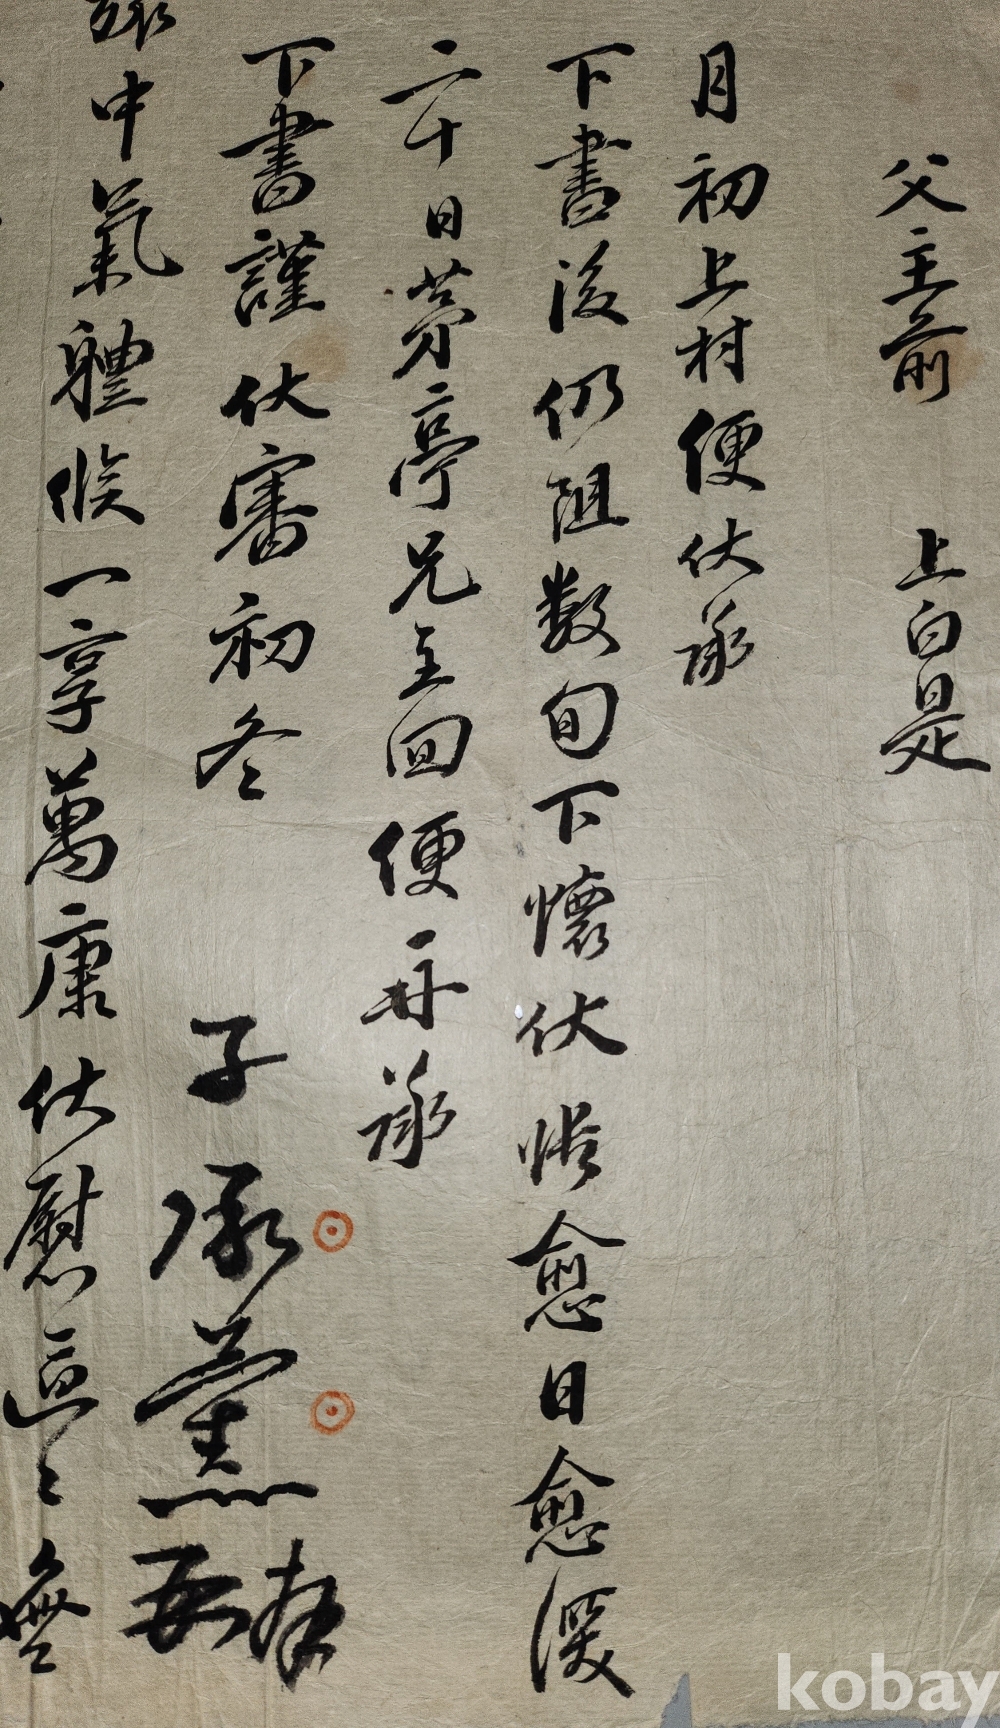 父主前 上白是
月初上村便伏承
下書後仍阻数旬下懷伏悵愈日愈深
二十日芳亭兄主回便再承
下書謹伏審初冬
子承薰
中氣體候一享萬康伏慰區々無
kobay